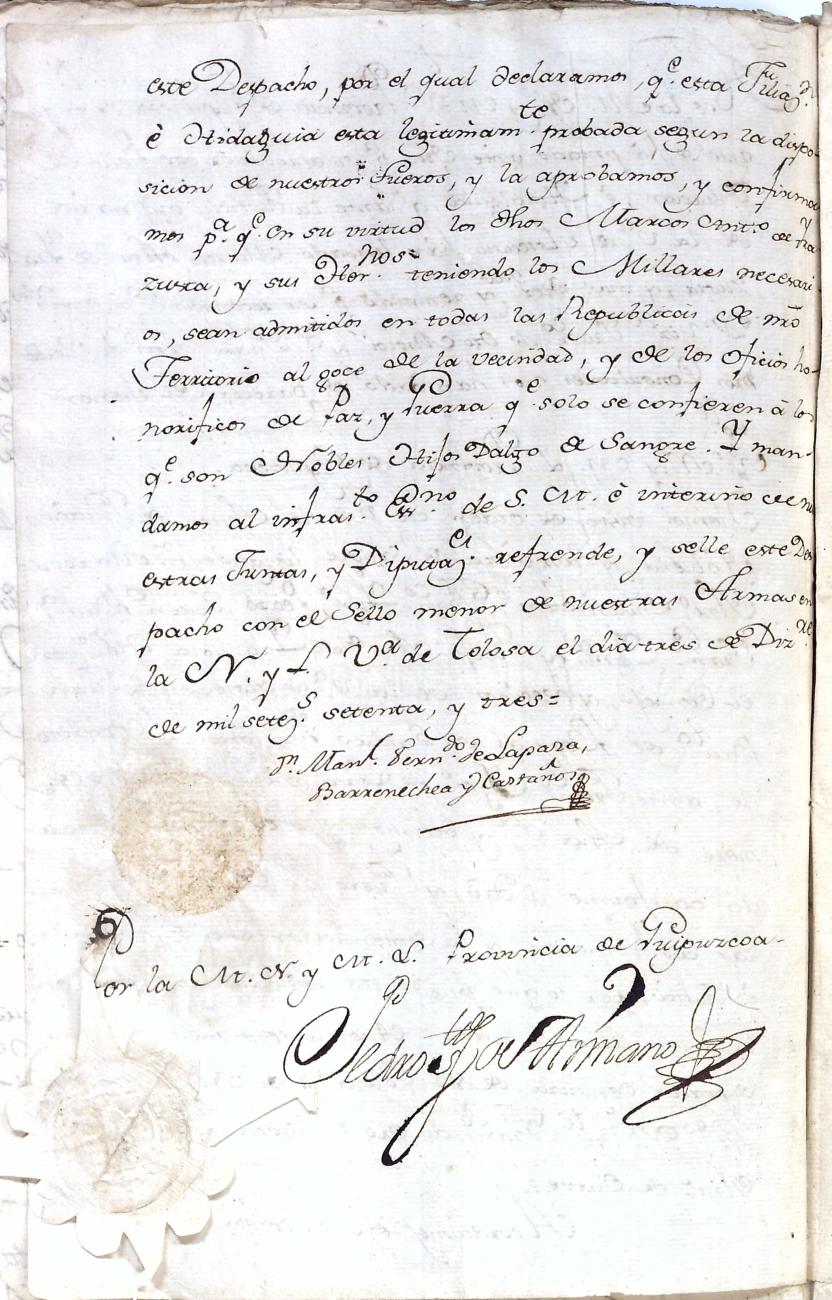 este Despacho, por el qual declaramos, q.e esta Filiaz.n
è Hidalguia esta legitimam.te probada segun la dispo-
sicion de nuestros Fueros, y la aprobamos, y confirma-
mos p.a q.e en su virtud los dhos Marcos Ant.o de
zuza, y sus Her.nos teniendo los Millares necesari-
os, sean admitidos en todas las Republicas de nrõ
Territorio al goce de la vecindad, y de los oficios ho-
norificos de Paz, y Guerra q.e solo se confieren à los
q.e son Nobles Hijos Dalgo de Sangre. Y man-
damos al infras.to Es.no de S. M. è interino de nu-
estras Juntas, y Diputaz.es refrende, y selle este Des-
pacho con el Sello menor de nuestras Armas en
la N. y L. V.a de Tolosa el dia tres de Diz.re
de mil setez.s setenta, y tres=
D.n Man.l Fern.do de Lapaza,
Barrenechea y Castaños
Por la M. N. y M. L. Provincia de Guipuzcoa-
Pedro de